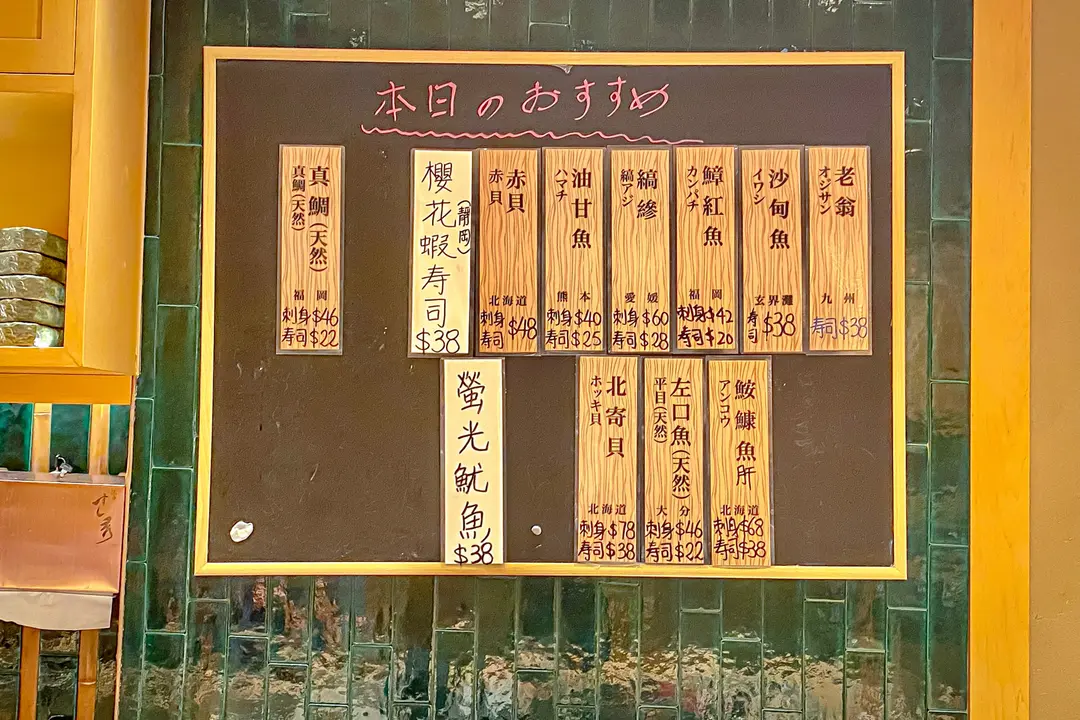 本日のおすすめ
老翁
オジサン
九州
寿司 $38
沙甸魚
イワシ
玄界灘
寿司 $38
鱆紅魚
カンパチ
福岡
刺身 $42
寿司 $20
縞鰺
縞アジ
愛媛
刺身 $60
寿司 $28
油甘魚
ハマチ
熊本
刺身 $40
寿司 $25
赤貝
赤貝
北海道
刺身
寿司 $48
櫻花蝦寿司
(靜岡)
$38
真鯛(天然)
真鯛(天然)
福岡
刺身 $46
寿司 $22
鮟鱇魚肝
アンコウ
北海道
刺身 $68
寿司 $38
左口魚(天然)
平目(天然)
大分
刺身 $46
寿司 $22
北寄貝
ホッキ貝
北海道
刺身 $78
寿司 $38
螢光魷魚
$38